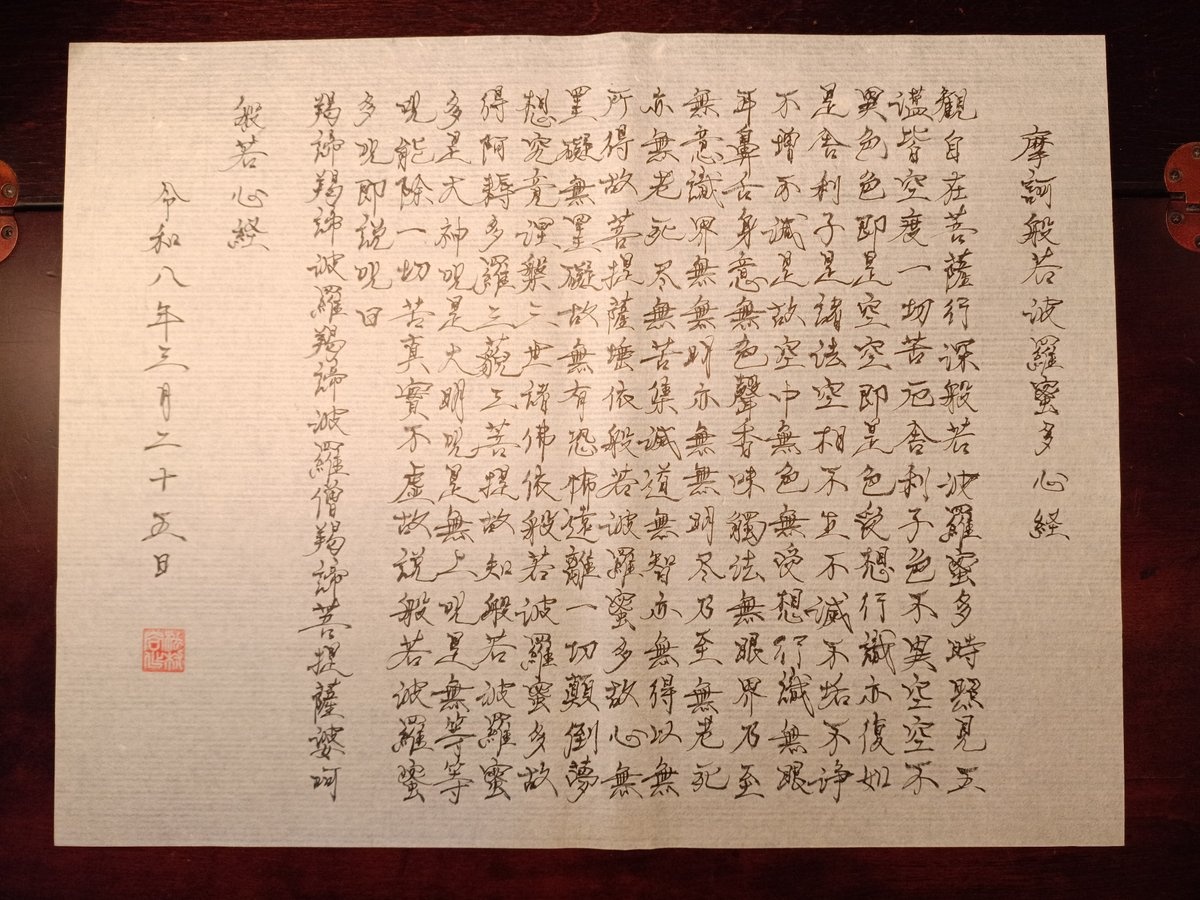 摩訶般若波羅蜜多心経
観自在菩薩行深般若波羅蜜多時照見五
蘊皆空度一切苦厄舎利子色不異空空不
異色色即是空空即是色受想行識亦復如
是舎利子是諸法空相不生不滅不垢不浄
不増不減是故空中無色無受想行識無眼
耳鼻舌身意無色聲香味觸法無眼界乃至
無意識界無無明亦無無明尽乃至無老死
亦無老死尽無苦集滅道無智亦無得以無
所得故菩提薩埵依般若波羅蜜多故心無
罣礙無罣礙故無有恐怖遠離一切顛倒夢
想究竟涅槃三世諸佛依般若波羅蜜多故
得阿耨多羅三藐三菩提故知般若波羅蜜
多是大神呪是大明呪是無上呪是無等等
呪能除一切苦真實不虚故説般若波羅蜜
多呪即説呪曰
羯諦羯諦波羅羯諦波羅僧羯諦菩提薩婆訶
般若心経
令和八年三月二十五日